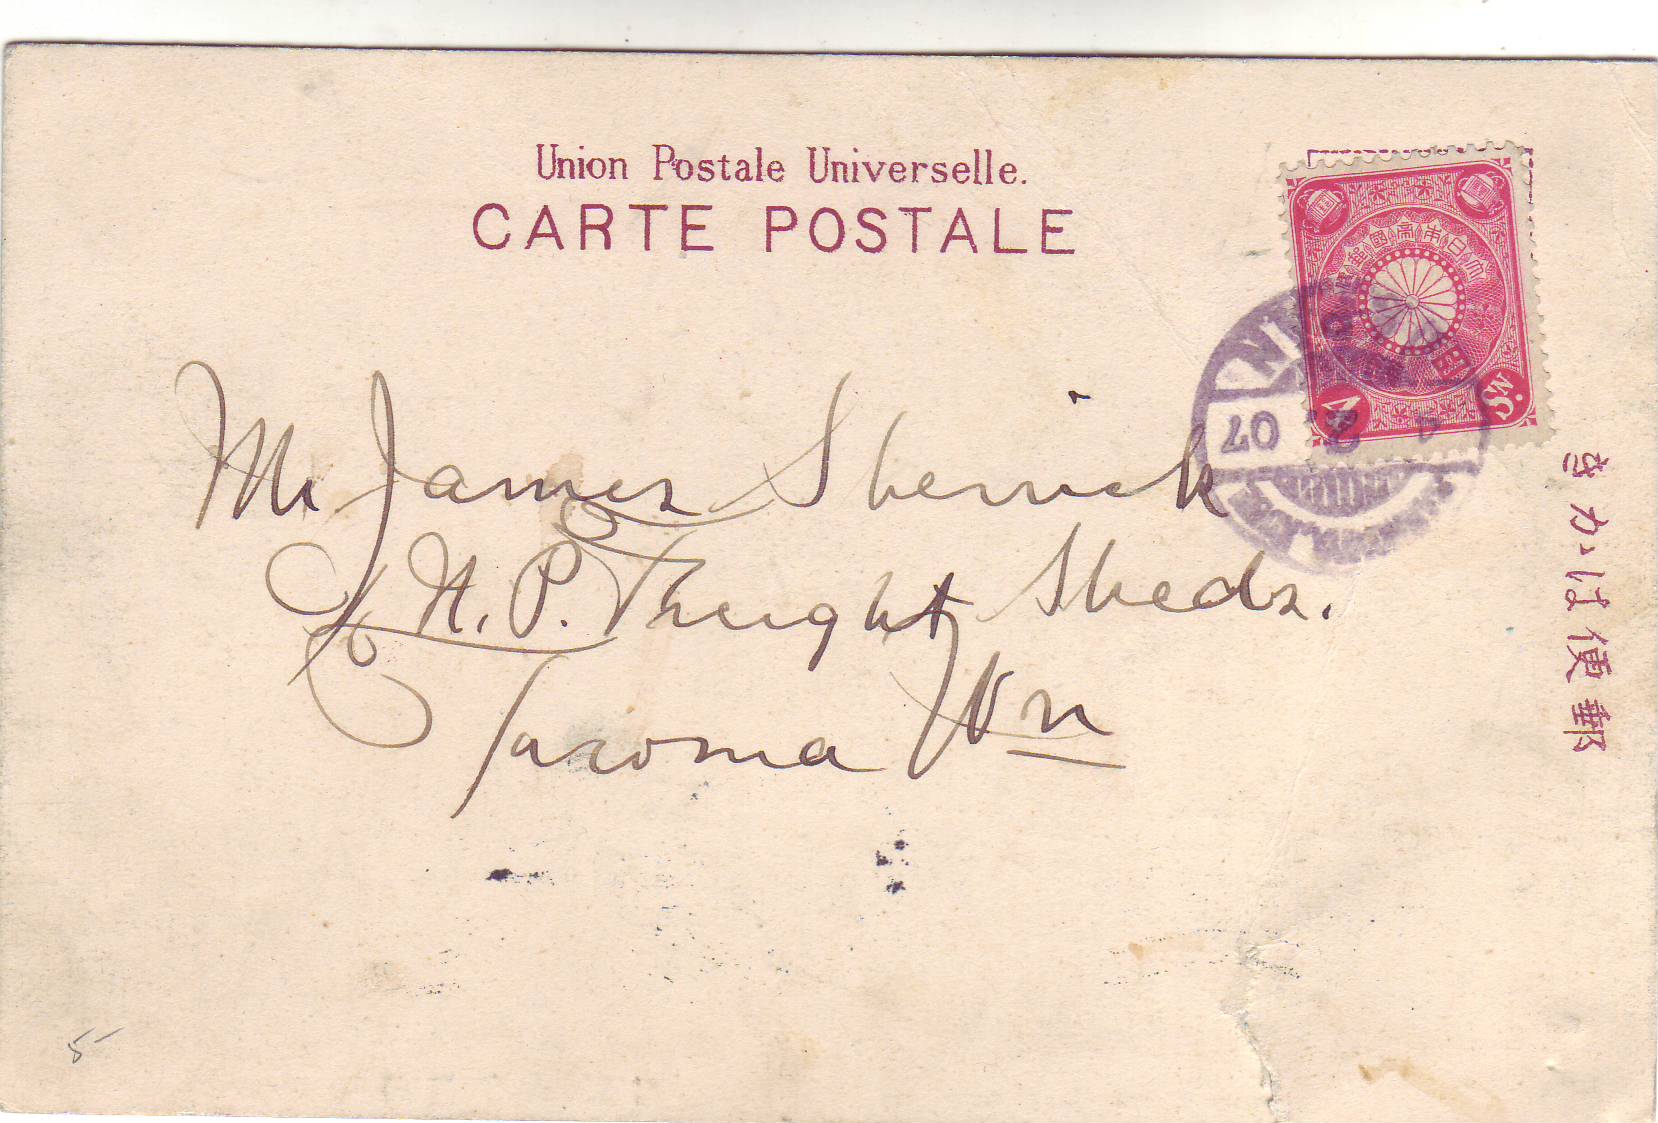 Union Postale Universelle.
CARTE POSTALE
大日本帝國郵便
4
Sn.
07
郵便はがき
Mr James Sherrick
N. P. Freight Sheds.
Tacoma Wn
5-